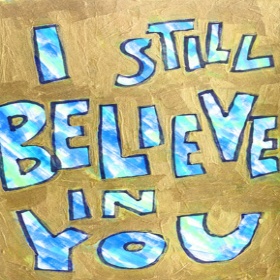 I STILL
BELIEVE
IN
YOU